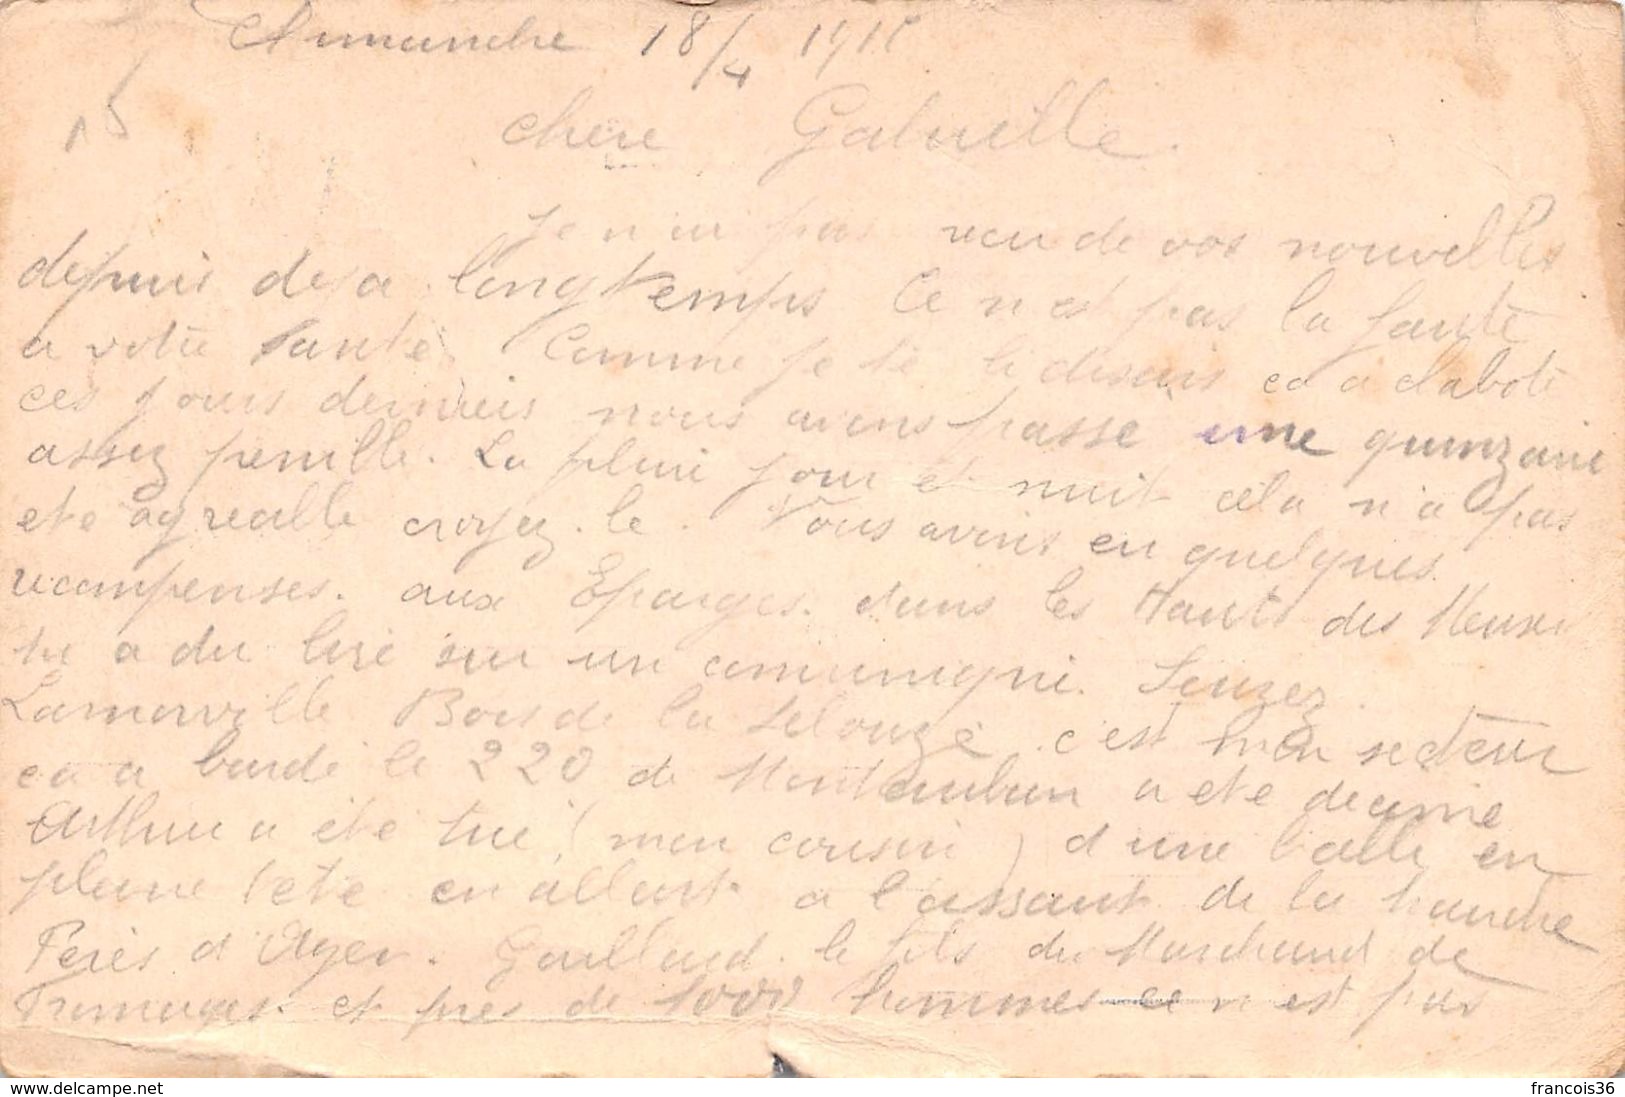 Dimanche 18/4 1915
15
chere Gabrielle.
Je n ai pas recu de vos nouvelles
depuis deja longtemps Ce n est pas la faute
a votre sante. Comme je te le disais ca a claboté
ces jours derniers nous avons passé une quinzaine
assez penible. La pluie jour et nuit cela n'a pas
ete agreable croyez-le. Vous avons eu quelques
recompenses. aux Eparges. dans les Hauts des Meuse
tu a du lire sur un comunique. Seuzey.
Lamorville Bois de la Selouze c'est mon secteur
ca a bardé le 220 de Montauban a ete decimé
Arthur a été tué (mon cousin) d'une balle en
pleine tete en allant a l'assaut de la tranchée
Perès d'Agen. Gaillard. le fils du Marchand de
Fromages. et près de 1000 hommes ce n est pas
www.delcampe.net
francois36